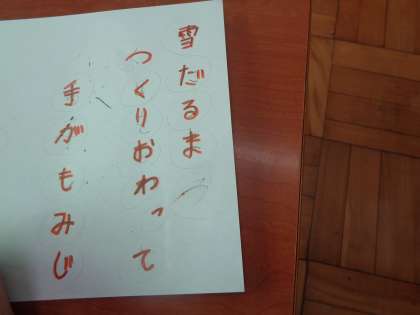 雪だるま
つくりおわって
手がもみじ